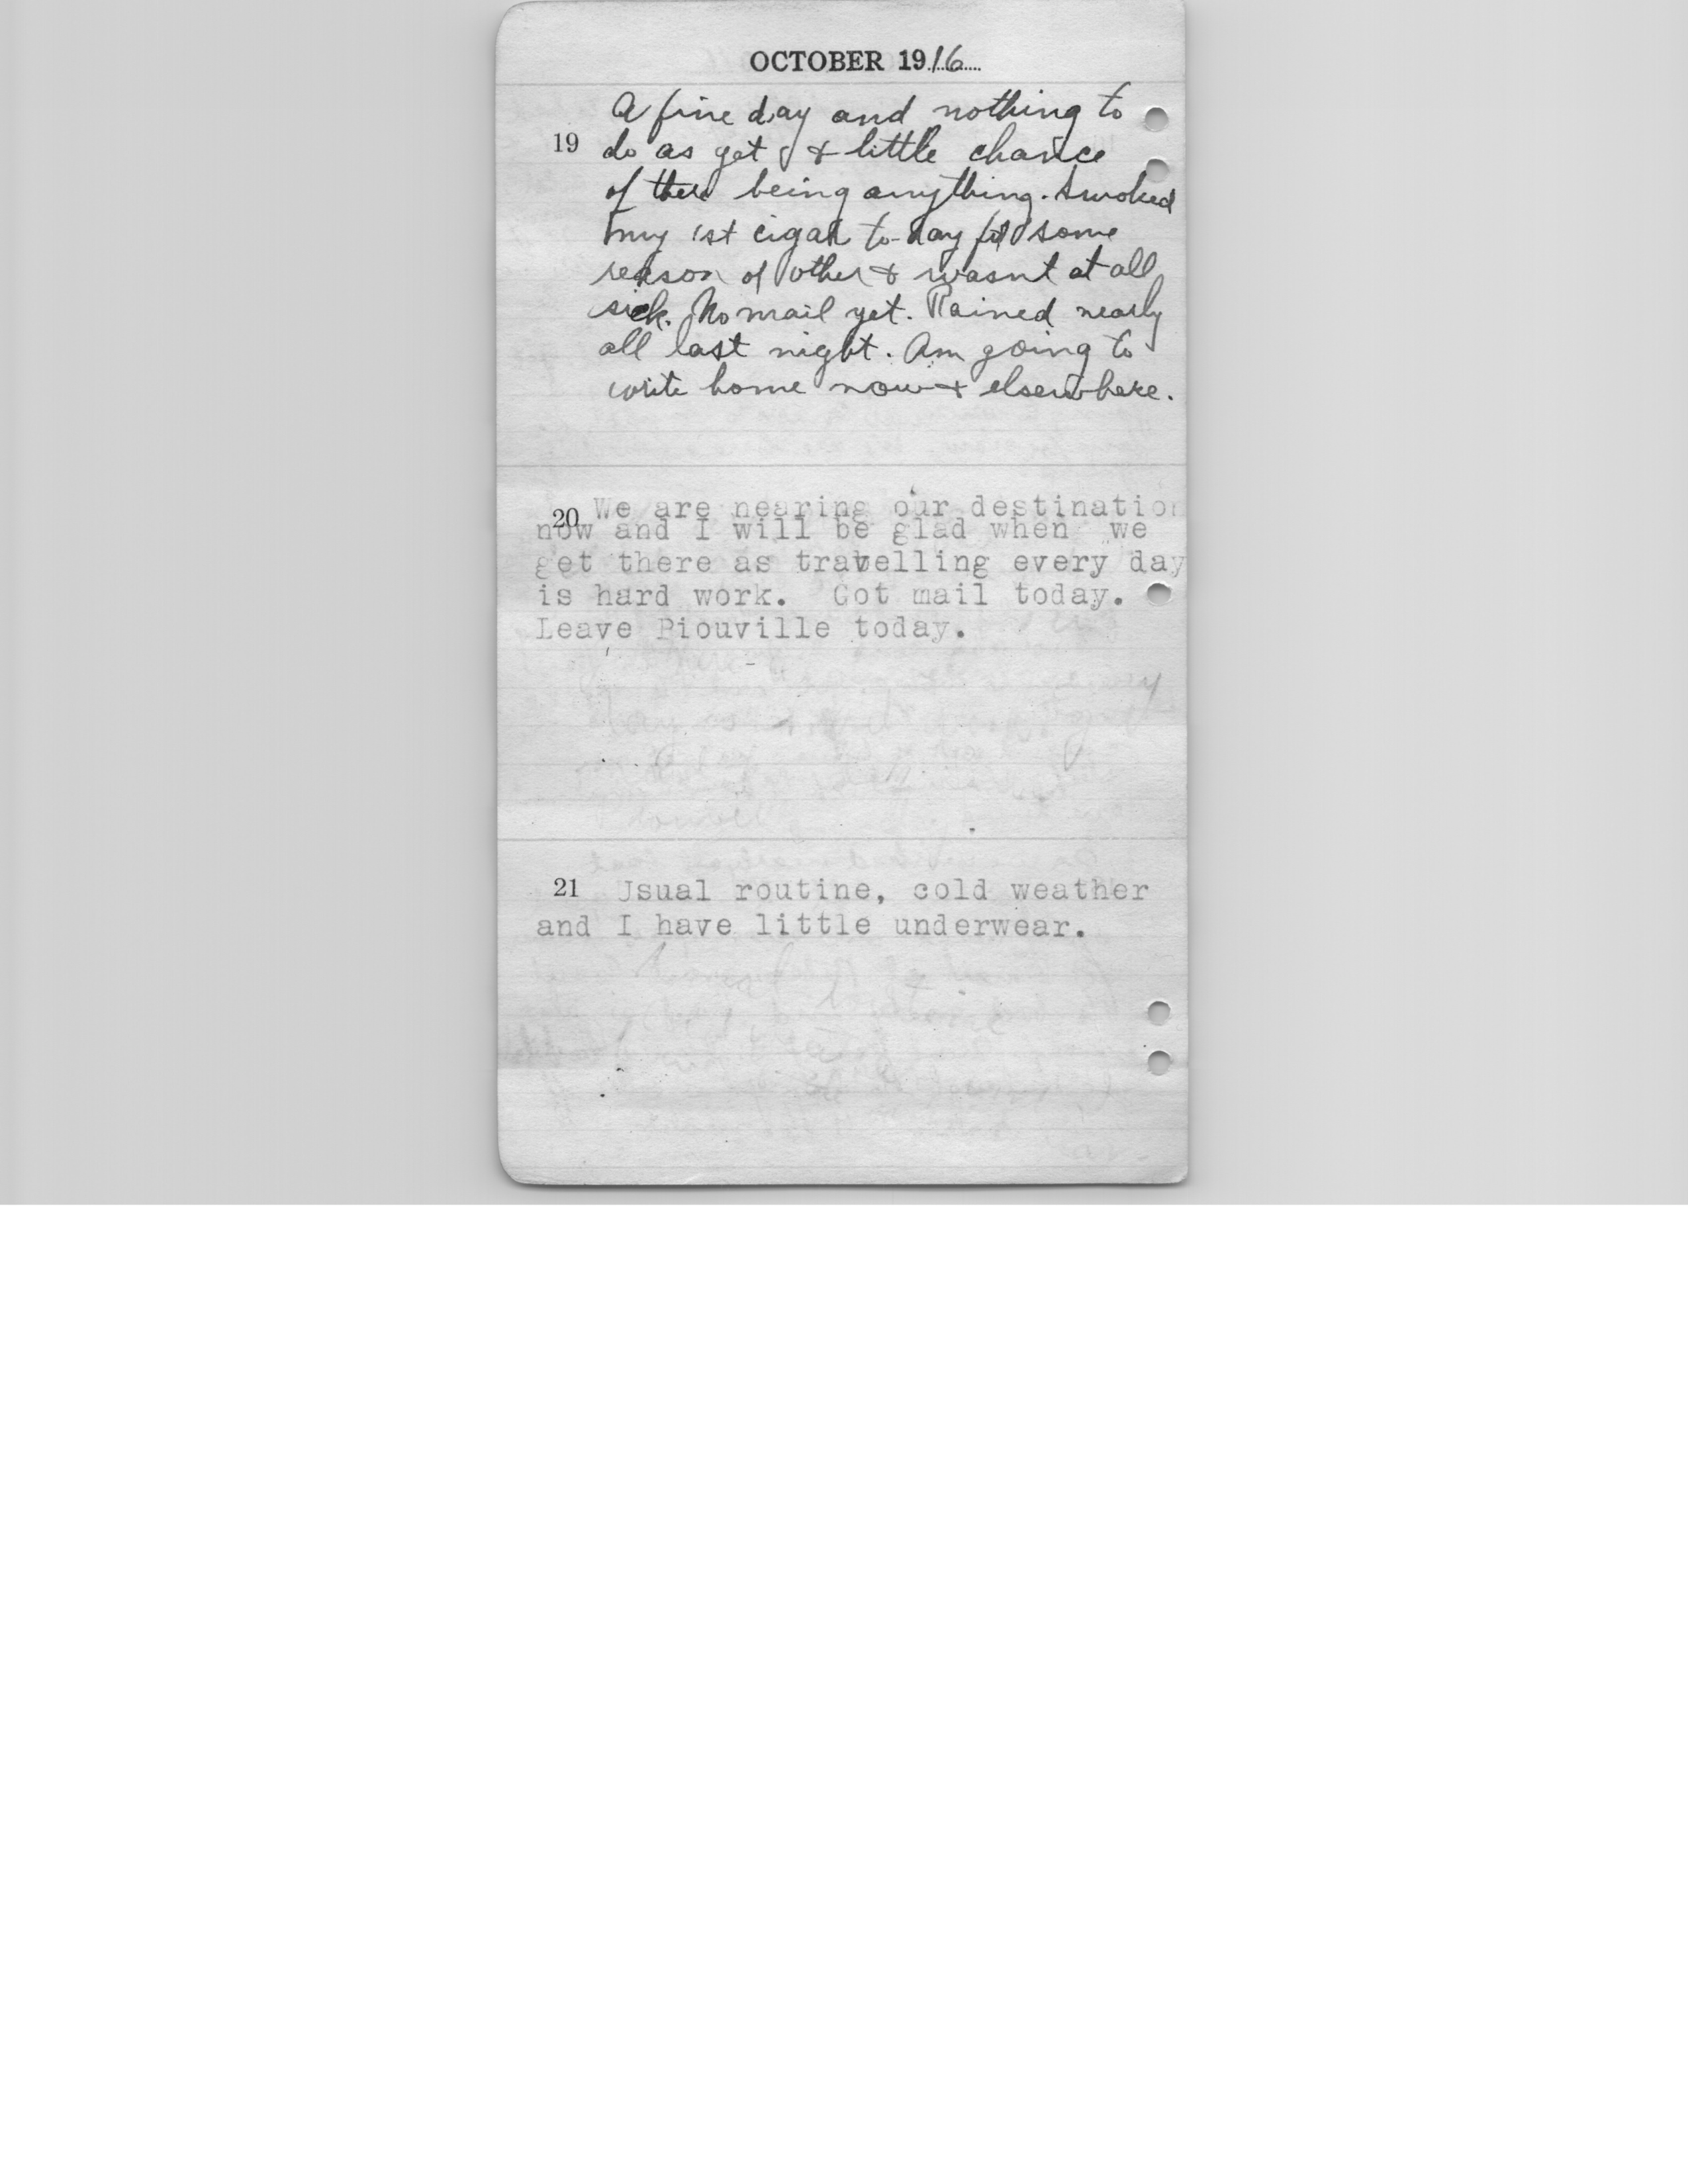 OCTOBER 1916
A fine day and nothing to
19 do as yet & little chance
of there being anything. Smoked
my 1st cigar to-day for some
reason or other & wasnt at all
sick. No mail yet. Rained nearly
all last night. Am going to
write home now & elsewhere.
20 We are nearing our destination
now and I will be glad when we
get there as travelling every day
is hard work. Got mail today.
Leave Piouville today.
21 Usual routine, cold weather
and I have little underwear.